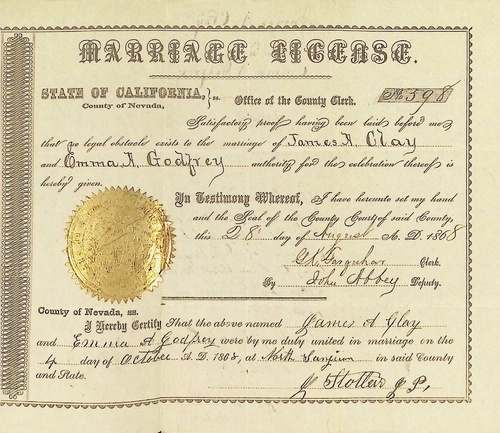 MARRIAGE LICENSE.
STATE OF CALIFORNIA, } ss. Office of the County Clerk. No. 598
County of Nevada,
Satisfactory proof having been laid before me,
that no legal obstacle exists to the marriage of James A. Clay
and Emma A. Godfrey authority for the celebration thereof is
hereby given.
In Testimony Whereof, I have hereunto set my hand
and the Seal of the County Court of said County,
this 28 day of August A. D. 1868
Farquhar Clerk.
By John Abbey Deputy.
County of Nevada, ss.
I Hereby Certify That the above named James A Clay
and Emma A Godfrey were by me duly united in marriage on the
4 day of October A. D. 1868, at North in said County
and State.
J. P.